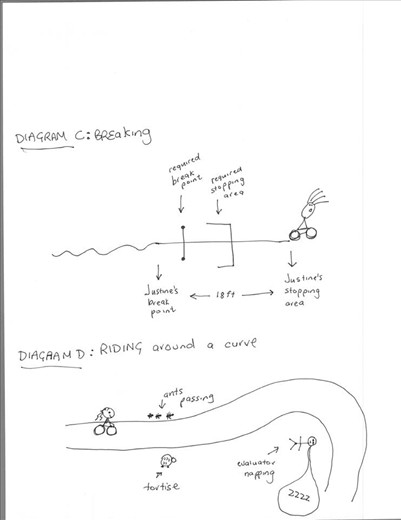 DIAGRAM C: BREAKING
required
break
point
required
stopping
area
Justine's
break
point
18ft
Justine's
stopping
area
DIAGRAM D: RIDING around a curve
ants
passing
tortise
evaluator
napping
ZZZZ